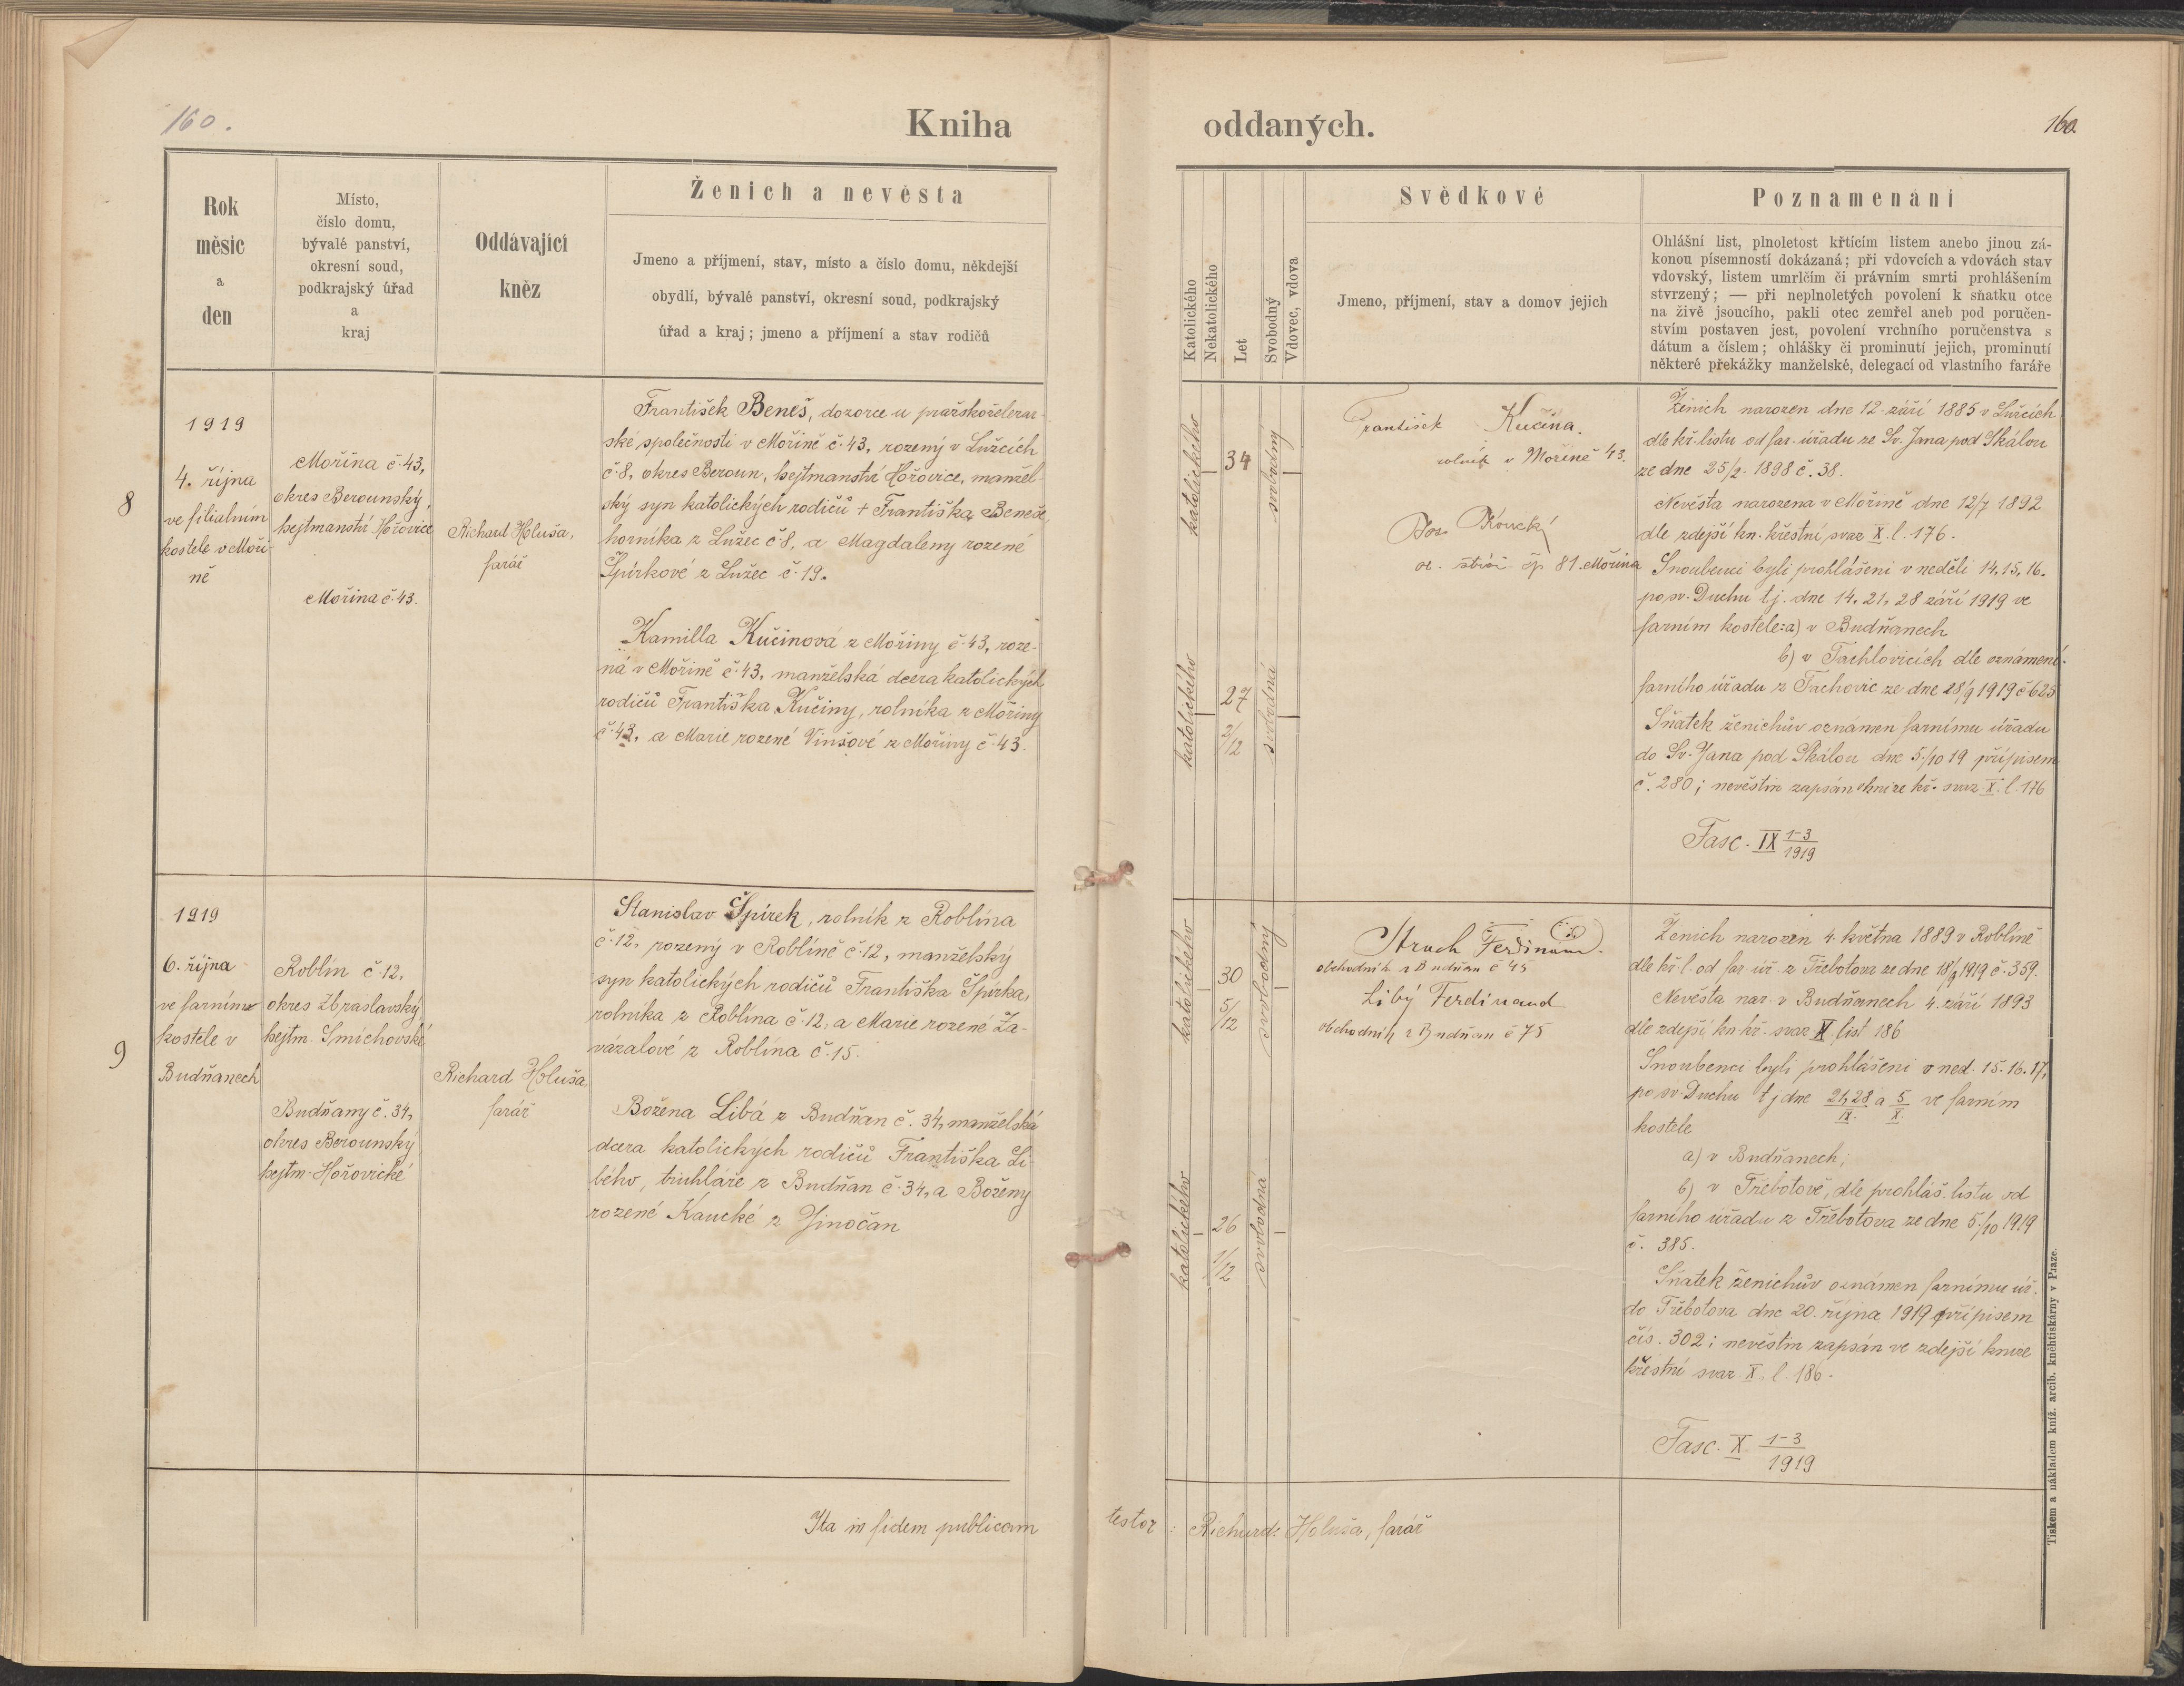 160.
Kniha
Rok
měsíc
a
den
Místo,
číslo domu,
bývalé panství,
okresní soud,
podkrajský úřad
a
kraj
Oddávající
kněz
Ženich a nevěsta
Jmeno a příjmení, stav, místo a číslo domu, někdejší
obydlí, bývalé panství, okresní soud, podkrajský
úřad a kraj; jmeno a příjmení a stav rodičů
8
1919
4. října
ve filialním
kostele v Moři-
ně
Mořina č. 43,
okres Berounský,
hejtmanství Hořovice
Mořina č. 43.
Richard Holuša,
farář
František Beneš, dozorce u
ské společnosti v Mořině č. 43, rozený v Lužcích
č. 8, okres Beroun, hejtmanství Hořovice, manžel-
ský syn katolických rodičů + Františka Beneše,
horníka z Lužec č. 8, a Magdaleny rozené
Špírkové z Lužec č. 19.
Kamilla Kučinová z Mořiny č. 43, roze-
ná v Mořině č. 43, manželská dcera katolických
rodičů Františka Kučiny, rolníka z Mořiny
č. 43, a Marie rozené Vinšové z Mořiny č. 43.
9
1919
6. října
ve farním
kostele v
Budňanech
Roblín č. 12,
okres Zbraslavský,
hejtm. Smíchovské
Budňany č. 34,
okres Berounský
hejtm. Hořovické
Richard Holuša
farář
Stanislav Špírek, rolník z Roblína
č. 12, rozený v Roblíně č. 12, manželský
syn katolických rodičů Františka Špírka,
rolníka z Roblína č. 12, a Marie rozené Za-
vázalové z Roblína č. 15.
Božena Libá z Budňan č. 34, manželská
dcera katolických rodičů Františka Li-
bého, truhláře z Budňan č. 34, a Boženy
rozené Kaucké z Jinočan
Ita in fidem publicam
oddaných.
160.
Katolického
Nekatolického
Let
Svobodný
Vdovec, vdova
Svědkové
Jmeno, příjmení, stav a domov jejich
Poznamenání
Ohlášní list, plnoletost křtícím listem anebo jinou zá-
konou písemností dokázaná; při vdovcích a vdovách stav
vdovský, listem umrlčím či právním smrti prohlášením
stvrzený; — při neplnoletých povolení k sňatku otce
na živě jsoucího, pakli otec zemřel aneb pod poručen-
stvím postaven jest, povolení vrchního poručenstva s
dátum a číslem; ohlášky či prominutí jejich, prominutí
některé překážky manželské, delegací od vlastního faráře
katolického
34
svobodný
katolického
27
2/12
svobodná
František Kučina.
rolník v Mořině 43.
Koucký
čp 81. Mořina
Ženich narozen dne 12. září 1885 v Lužcích
dle kř. listu od far. úřadu ze Sv. Jana pod Skálou
ze dne 25/2. 1898 č. 38.
Nevěsta narozena v Mořině dne 12/7 1892
dle zdejší kn. křestní svaz. X. l. 176.
Snoubenci byli prohlášeni v neděli 14, 15, 16.
po sv. Duchu tj. dne 14, 21, 28 září 1919 ve
farním kostele: a) v Budňanech
b) v Tachlovicích dle oznámení
farního úřadu z Tachovic ze dne 28/9 1919 č 625
Sňatek ženichův oznámen farnímu úřadu
do Sv. Jana pod Skálou dne 5./10 19 přípisem
č. 280; nevěstin zapsán v knize kř. svaz. X. l. 176
Fasc. IX 1-3/1919
katolického
30
5/12
svobodný
katolického
26
1/12
svobodná
Ferdinand
obchodník z Budňan č 45
Libý Ferdinand
obchodník z Budňan č 75
Ženich narozen 4. května 1889 v Roblíně
dle kř. l. od far. úř. z Třebotova ze dne 18/9 1919 č. 359.
Nevěsta nar. v Budňanech 4. září 1893
dle zdejší kn. kř. svaz. X, list 186
Snoubenci byli prohlášeni v ned. 15. 16. 17,
po sv Duchu tj dne 21, 28/IX. a 5/X. ve farním
kostele
a) v Budňanech;
b) v Třebotově, dle prohláš. listu od
farního úřadu z Třebotova ze dne 5./10 1919
č. 385.
Sňatek ženichův oznámen farnímu úř.
do Třebotova dne 20. října 1919 přípisem
čís. 302; nevěstin zapsán ve zdejší knize
křestní svaz. X. l. 186.
Fasc. X 1-3/1919
testor: Richard Holuša, farář
Tiskem a nákladem kníž. arcib. kněhtiskárny v Praze.